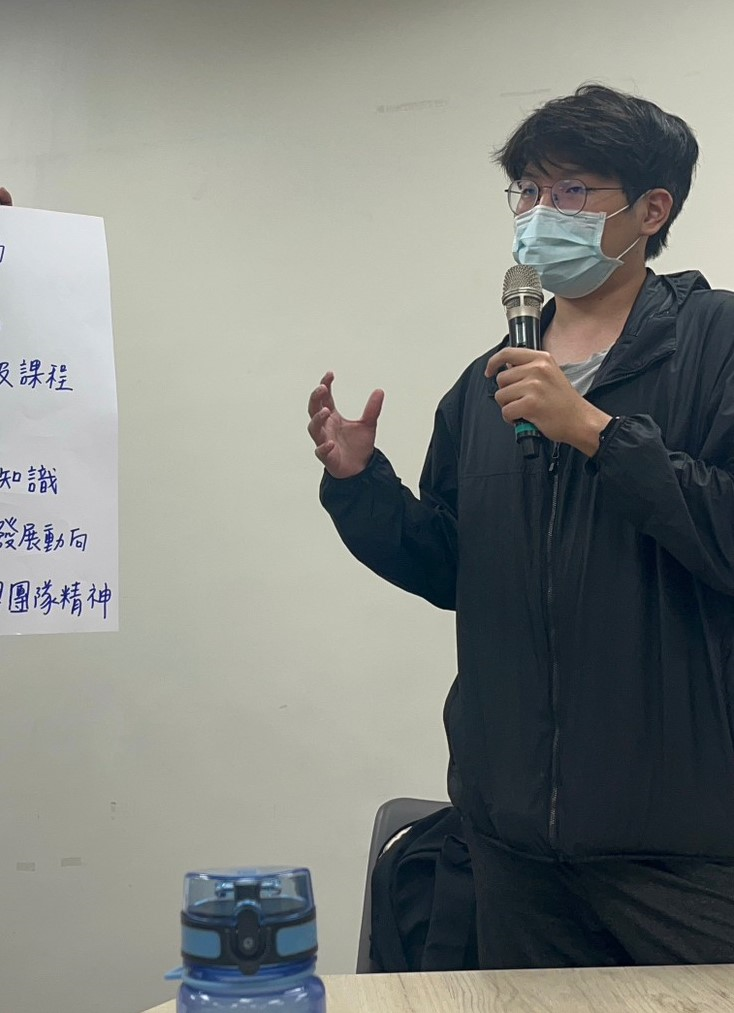 及課程
知識
發展動向
團隊精神